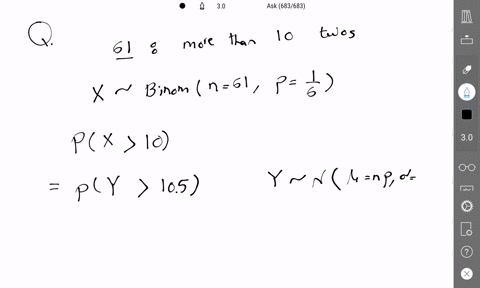 3.0
Ask (683/683)
Q.
61 : more than 10 twos
X ~ Binom(n=61, P=1/6)
P(X > 10)
= P(Y > 10.5)
Y ~ N(μ=np, σ=
3.0